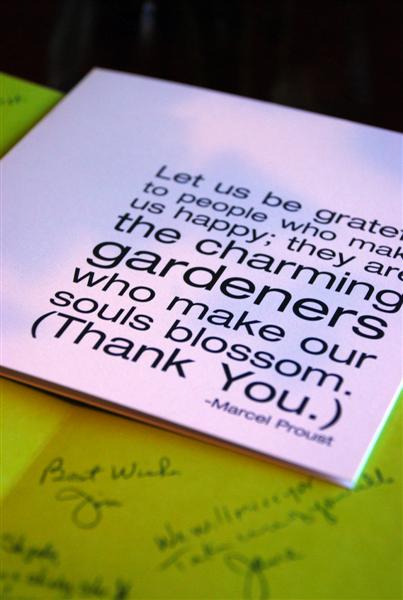 Let us be gratef
to people who mak
us happy; they are
the charming
gardeners
who make our
souls blossom.
(Thank You.)
-Marcel Proust
Best Wishes
We will miss you
Take care